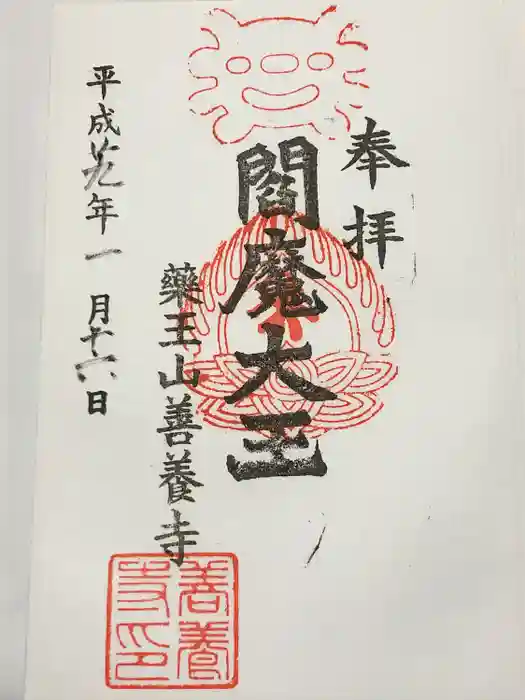 奉拝
閻魔大王
薬王山善養寺
平成廿九年一月十六日
善養寺印